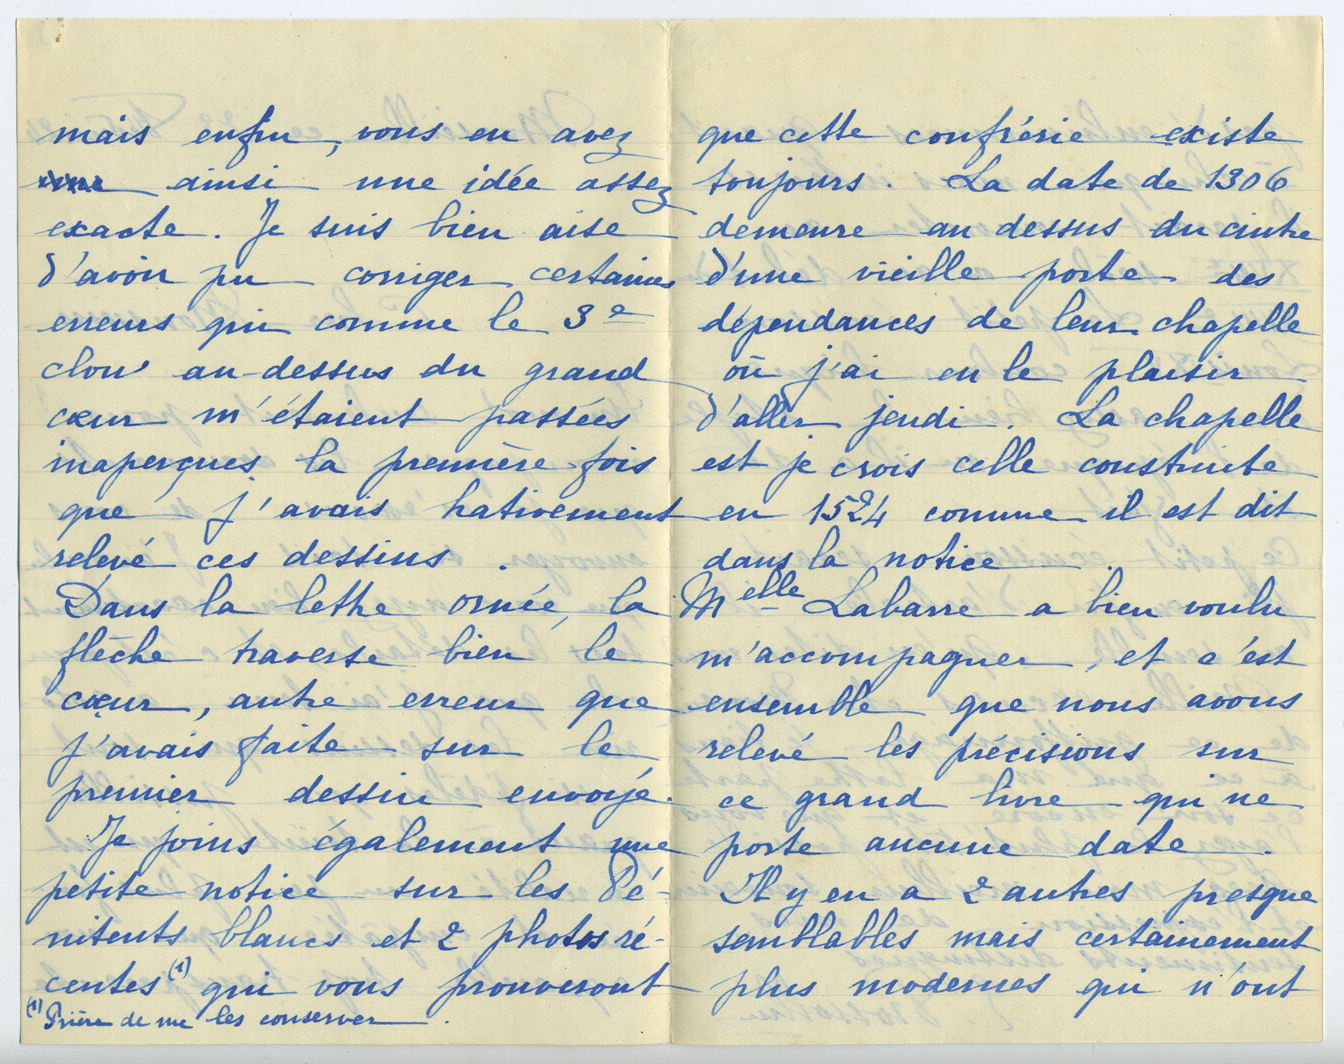 mais enfin, vous en avez
ainsi une idée assez
exacte. Je suis bien aise
d'avoir pu corriger certaines
erreurs qui comme le 3e
clou au-dessus du grand
cœur m'étaient passées
inaperçues la première fois
que j'avais hativement
relevé ces dessins.
Dans la lettre ornée, la
flèche traverse bien le
cœur, autre erreur que
j'avais faite sur le
premier dessin envoyé.
Je joins également une
petite notice sur les Pé-
nitents blancs et 2 photos ré-
centes (1) qui vous prouveront
(1) Prière de me les conserver.
que cette confrérie existe
toujours. La date de 1306
demeure au dessus du cintre
d'une vieille porte des
dépendances de leur chapelle
où j'ai eu le plaisir
d'aller jeudi. La chapelle
est je crois celle construite
en 1524 comme il est dit
dans la notice.
Melle Labarre a bien voulu
m'accompagner, et c'est
ensemble que nous avons
relevé les précisions sur
ce grand livre qui ne
porte aucune date.
Il y en a 2 autres presque
semblables mais certainement
plus modernes qui n'ont